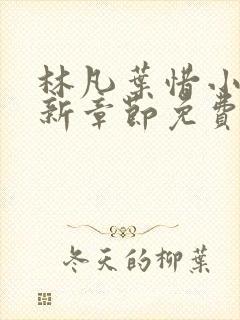 林凡葉惜小
新章節免費
冬天的柳葉